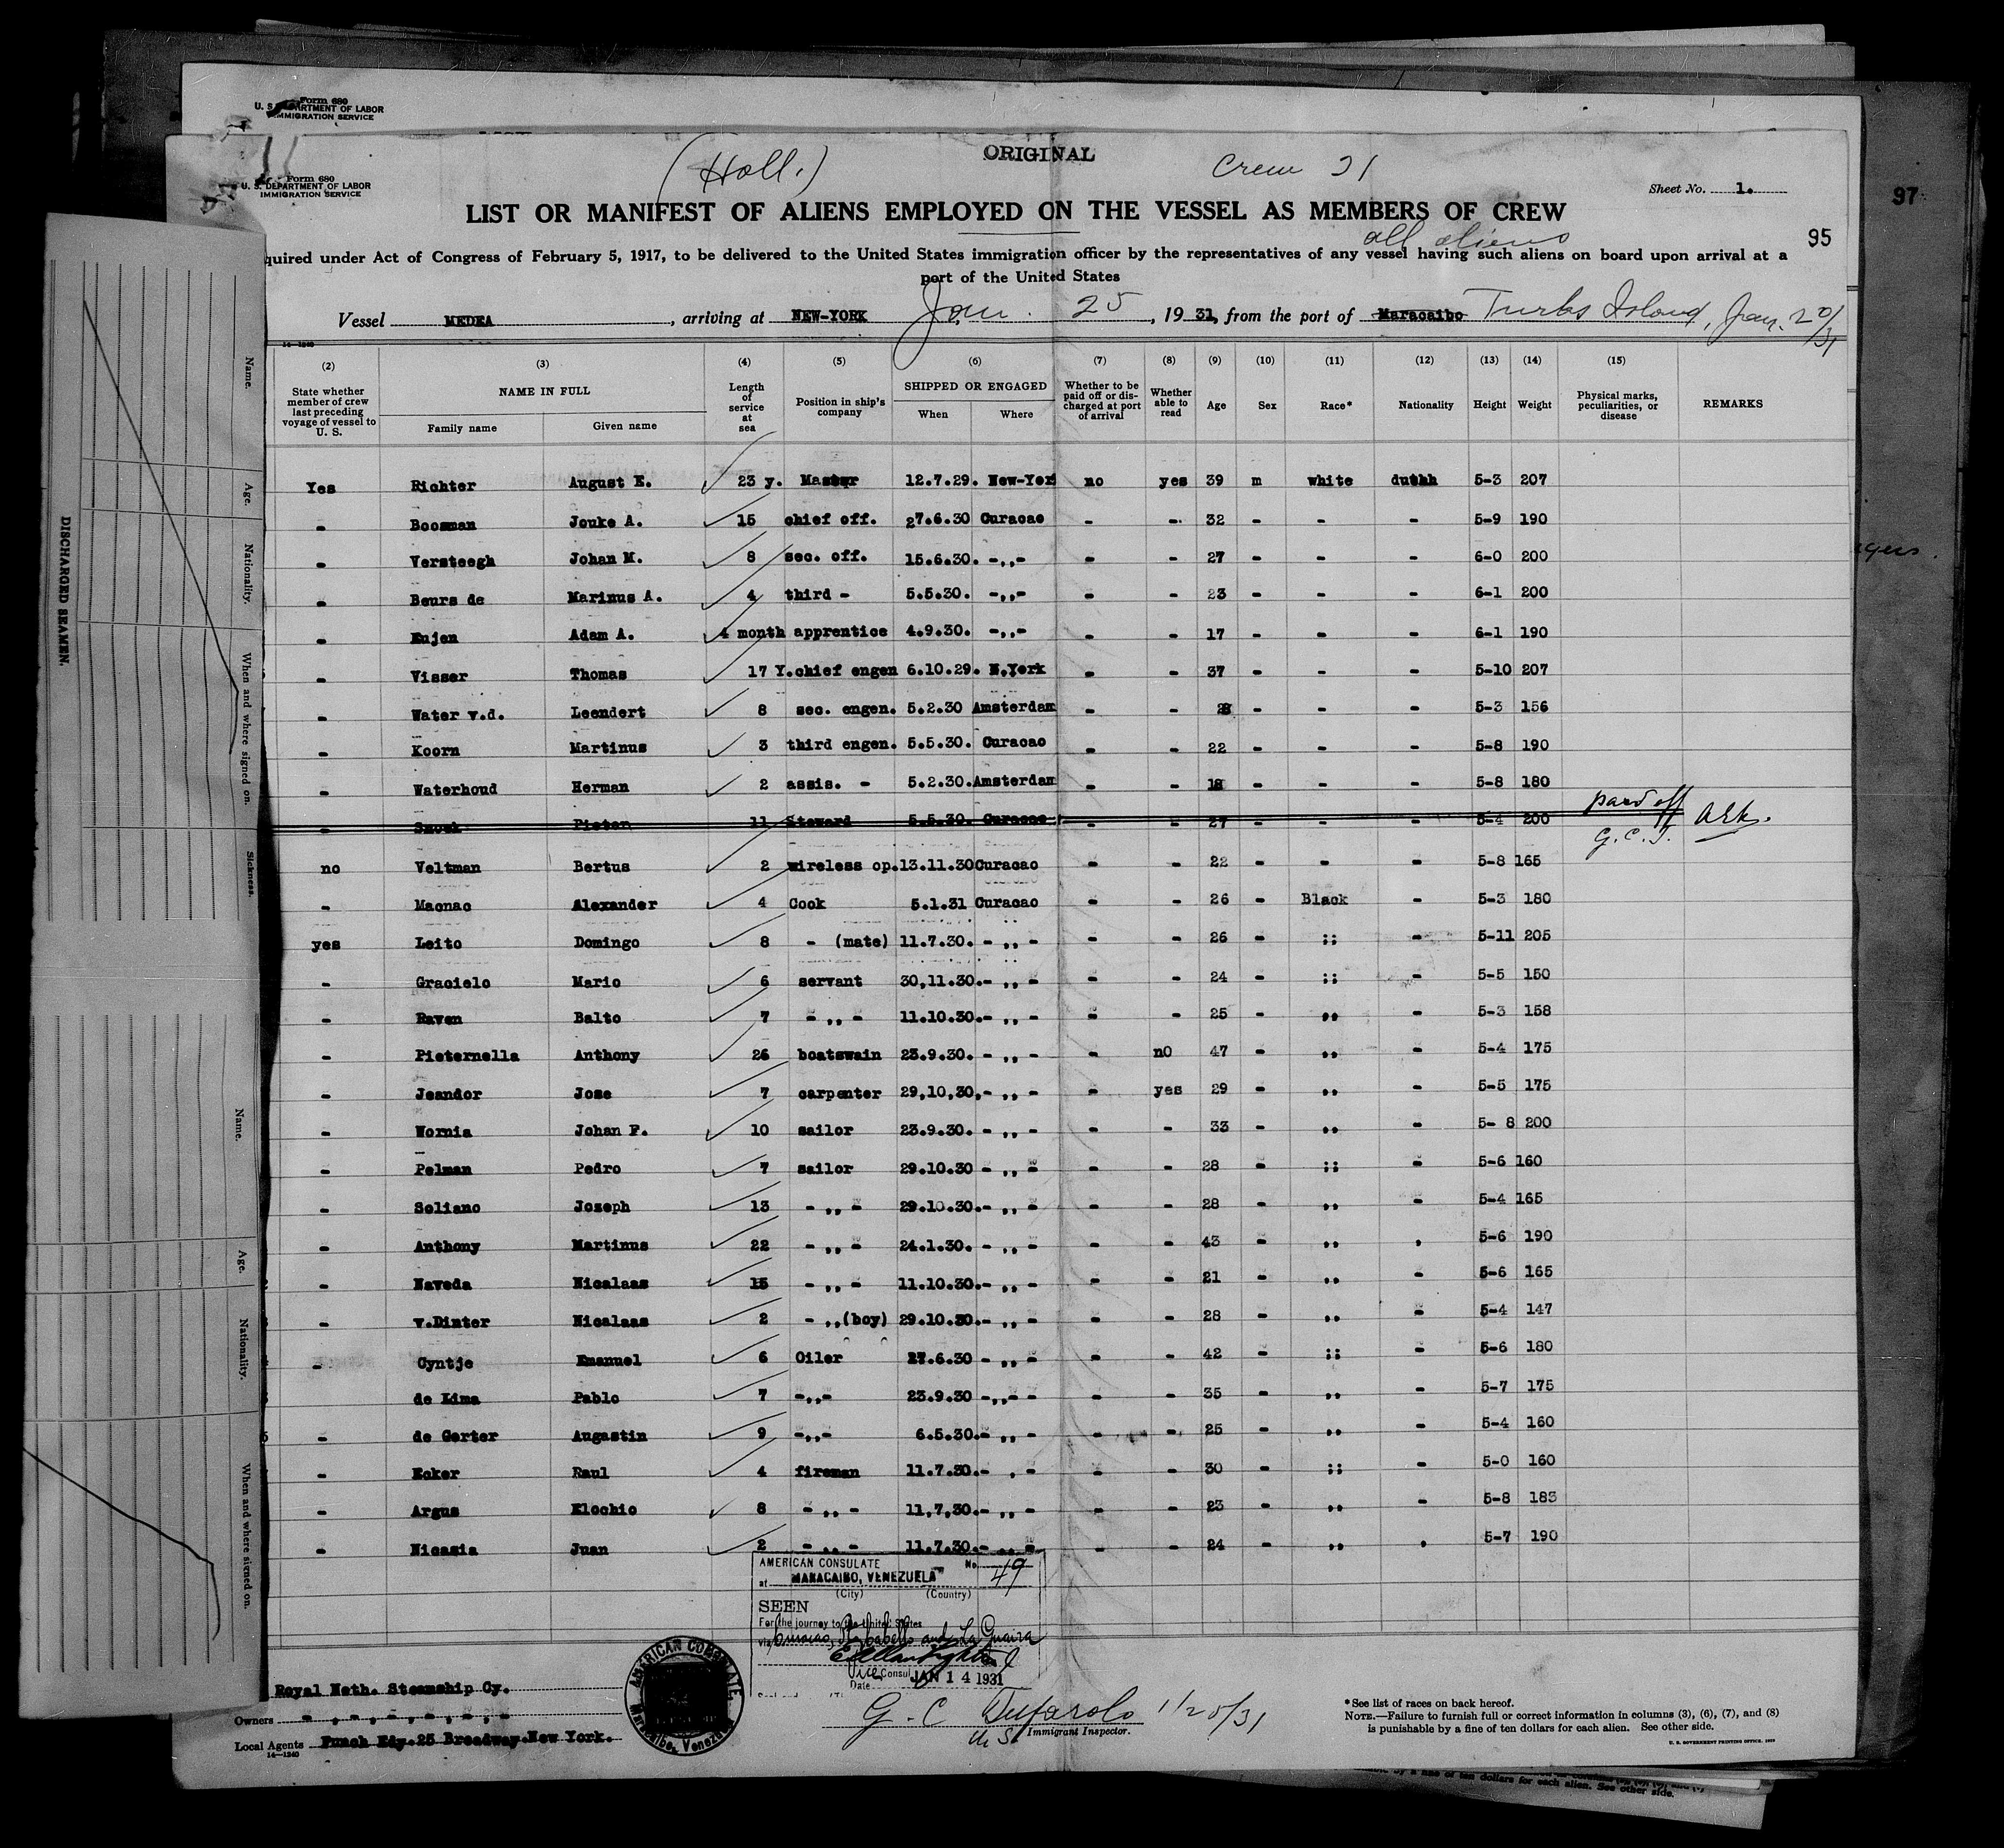 Form 680
U. S. DEPARTMENT OF LABOR
IMMIGRATION SERVICE
97
ORIGINAL
(Holl.)
Crew 31
Form 680
U. S. DEPARTMENT OF LABOR
IMMIGRATION SERVICE
Sheet No. 1.
LIST OR MANIFEST OF ALIENS EMPLOYED ON THE VESSEL AS MEMBERS OF CREW
all aliens
95
quired under Act of Congress of February 5, 1917, to be delivered to the United States immigration officer by the representatives of any vessel having such aliens on board upon arrival at a
port of the United States
Vessel MEDEA, arriving at NEW-YORK Jan. 25, 19 31, from the port of Maracaibo Turks Island, Jan. 20/31
14-1240
(2) (3) (4) (5) (6) (7) (8) (9) (10) (11) (12) (13) (14) (15)
State whether member of crew last preceding voyage of vessel to U. S. NAME IN FULL Family name Given name Length of service at sea Position in ship's company SHIPPED OR ENGAGED When Where Whether to be paid off or discharged at port of arrival Whether able to read Age Sex Race* Nationality Height Weight Physical marks, peculiarities, or disease REMARKS
Yes Richter August E. 23 y. Master 12.7.29. New-Yor no yes 39 m white 5-3 207
- Boosman Jouke A. 15 chief off. 27.6.30 Curacao - - 32 - - - 5-9 190
- Versteegh Johan M. 8 sec. off. 15.6.30. -,,- - - 27 - - - 6-0 200
- Beurs de Marinus A. 4 third - 5.5.30. -,,- - - 23 - - - 6-1 200
- Enjen Adam A. 4 month apprentice 4.9.30. -,,- - - 17 - - - 6-1 190
- Visser Thomas 17 Y. chief engen 6.10.29. N.York - - 37 - - - 5-10 207
- Water v.d. Leendert 8 sec. engen. 5.2.30 Amsterdam - - 28 - - - 5-3 156
- Koorn Martinus 3 third engen. 5.5.30. Curacao - - 22 - - - 5-8 190
- Waterhoud Herman 2 assis. - 5.2.30. Amsterdam - - 18 - - - 5-8 180
- Pieter 11 Steward 5.5.30. Curacao - - 27 - - - 5-4 200 paid off
G.C.T.
no Veltman Bertus 2 wireless op. 13.11.30 Curacao - - 22 - - - 5-8 165
- Macnac Alexander 4 Cook 5.1.31 Curacao - - 26 - Black - 5-3 180
yes Leito Domingo 8 - (mate) 11.7.30. - ,, - - - 26 - ;; - 5-11 205
- Gracielo Mario 6 servant 30,11.30. - ,, - - - 24 - ;; - 5-5 150
- Raven Balto 7 - ,, - 11.10.30. - ,, - - - 25 - ,, - 5-3 158
- Pieternella Anthony 26 boatswain 23.9.30. - ,, - - no 47 - ,, - 5-4 175
- Jeandor Jose 7 carpenter 29,10,30, - ,, - - yes 29 - ,, - 5-5 175
- Wornia Johan F. 10 sailor 23.9.30. - ,, - - - 33 - ,, - 5- 8 200
- Pelman Pedro 7 sailor 29.10.30 - ,, - - - 28 - ;; - 5-6 160
- Soliano Joseph 13 - ,, - 29.10.30. - ,, - - - 28 - ,, - 5-4 165
- Anthony Martinus 22 - ,, - 24.1.30. - ,, - - - 43 - ,, , 5-6 190
- Naveda Nicalaas 15 - ,, - 11.10.30. - ,, - - - 21 - ,, - 5-6 165
- v.Dinter Nicalaas 2 - ,,(boy) 29.10.30. - ,, - - - 28 - ,, - 5-4 147
- Cyntje Emanuel 6 Oiler 27.6.30 - ,, - - - 42 - ;; - 5-6 180
de Lima Pablo 7 -,,- 23.9.30 -,,-- - - 35 - ,, - 5-7 175
- de Gerter Augastin 9 -,,- 6.5.30. - ,, - - - 25 - ,, - 5-4 160
- Ecker Raul 4 fireman 11.7.30. - , - - - 30 - ;; - 5-0 160
- Argus Elochio 8 - ,, - 11,7,30. - ,, - - - 23 - ,, - 5-8 183
- Nicasia Juan 2 - ,, - 11.7.30. - ,, - - - 24 - ,, , 5-7 190
AMERICAN CONSULATE No. 49
at MARACAIBO, VENEZUELA
(City) (Country)
SEEN
For the journey to the United States
via Curacao, Pto Cabello and La Guaira
Vice Consul
Date JAN 14 1931
AMERICAN CONSULATE.
Maracaibo, Venezuela
Royal Neth. Steamship Cy.
Owners - , - , - , - , - , -
Local Agents Funch Edy. 25 Broadway. New York.
14-1240
G. C. 1/25/31
U. S. Immigrant Inspector.
*See list of races on back hereof.
NOTE.—Failure to furnish full or correct information in columns (3), (6), (7), and (8)
is punishable by a fine of ten dollars for each alien. See other side.
U. S. GOVERNMENT PRINTING OFFICE. 1929
of ten dollars for each alien. See other side.
DISCHARGED SEAMEN.
Name.
Age.
Nationality.
When and where signed on.
Sickness.
Name.
Age.
Nationality.
When and where signed on.